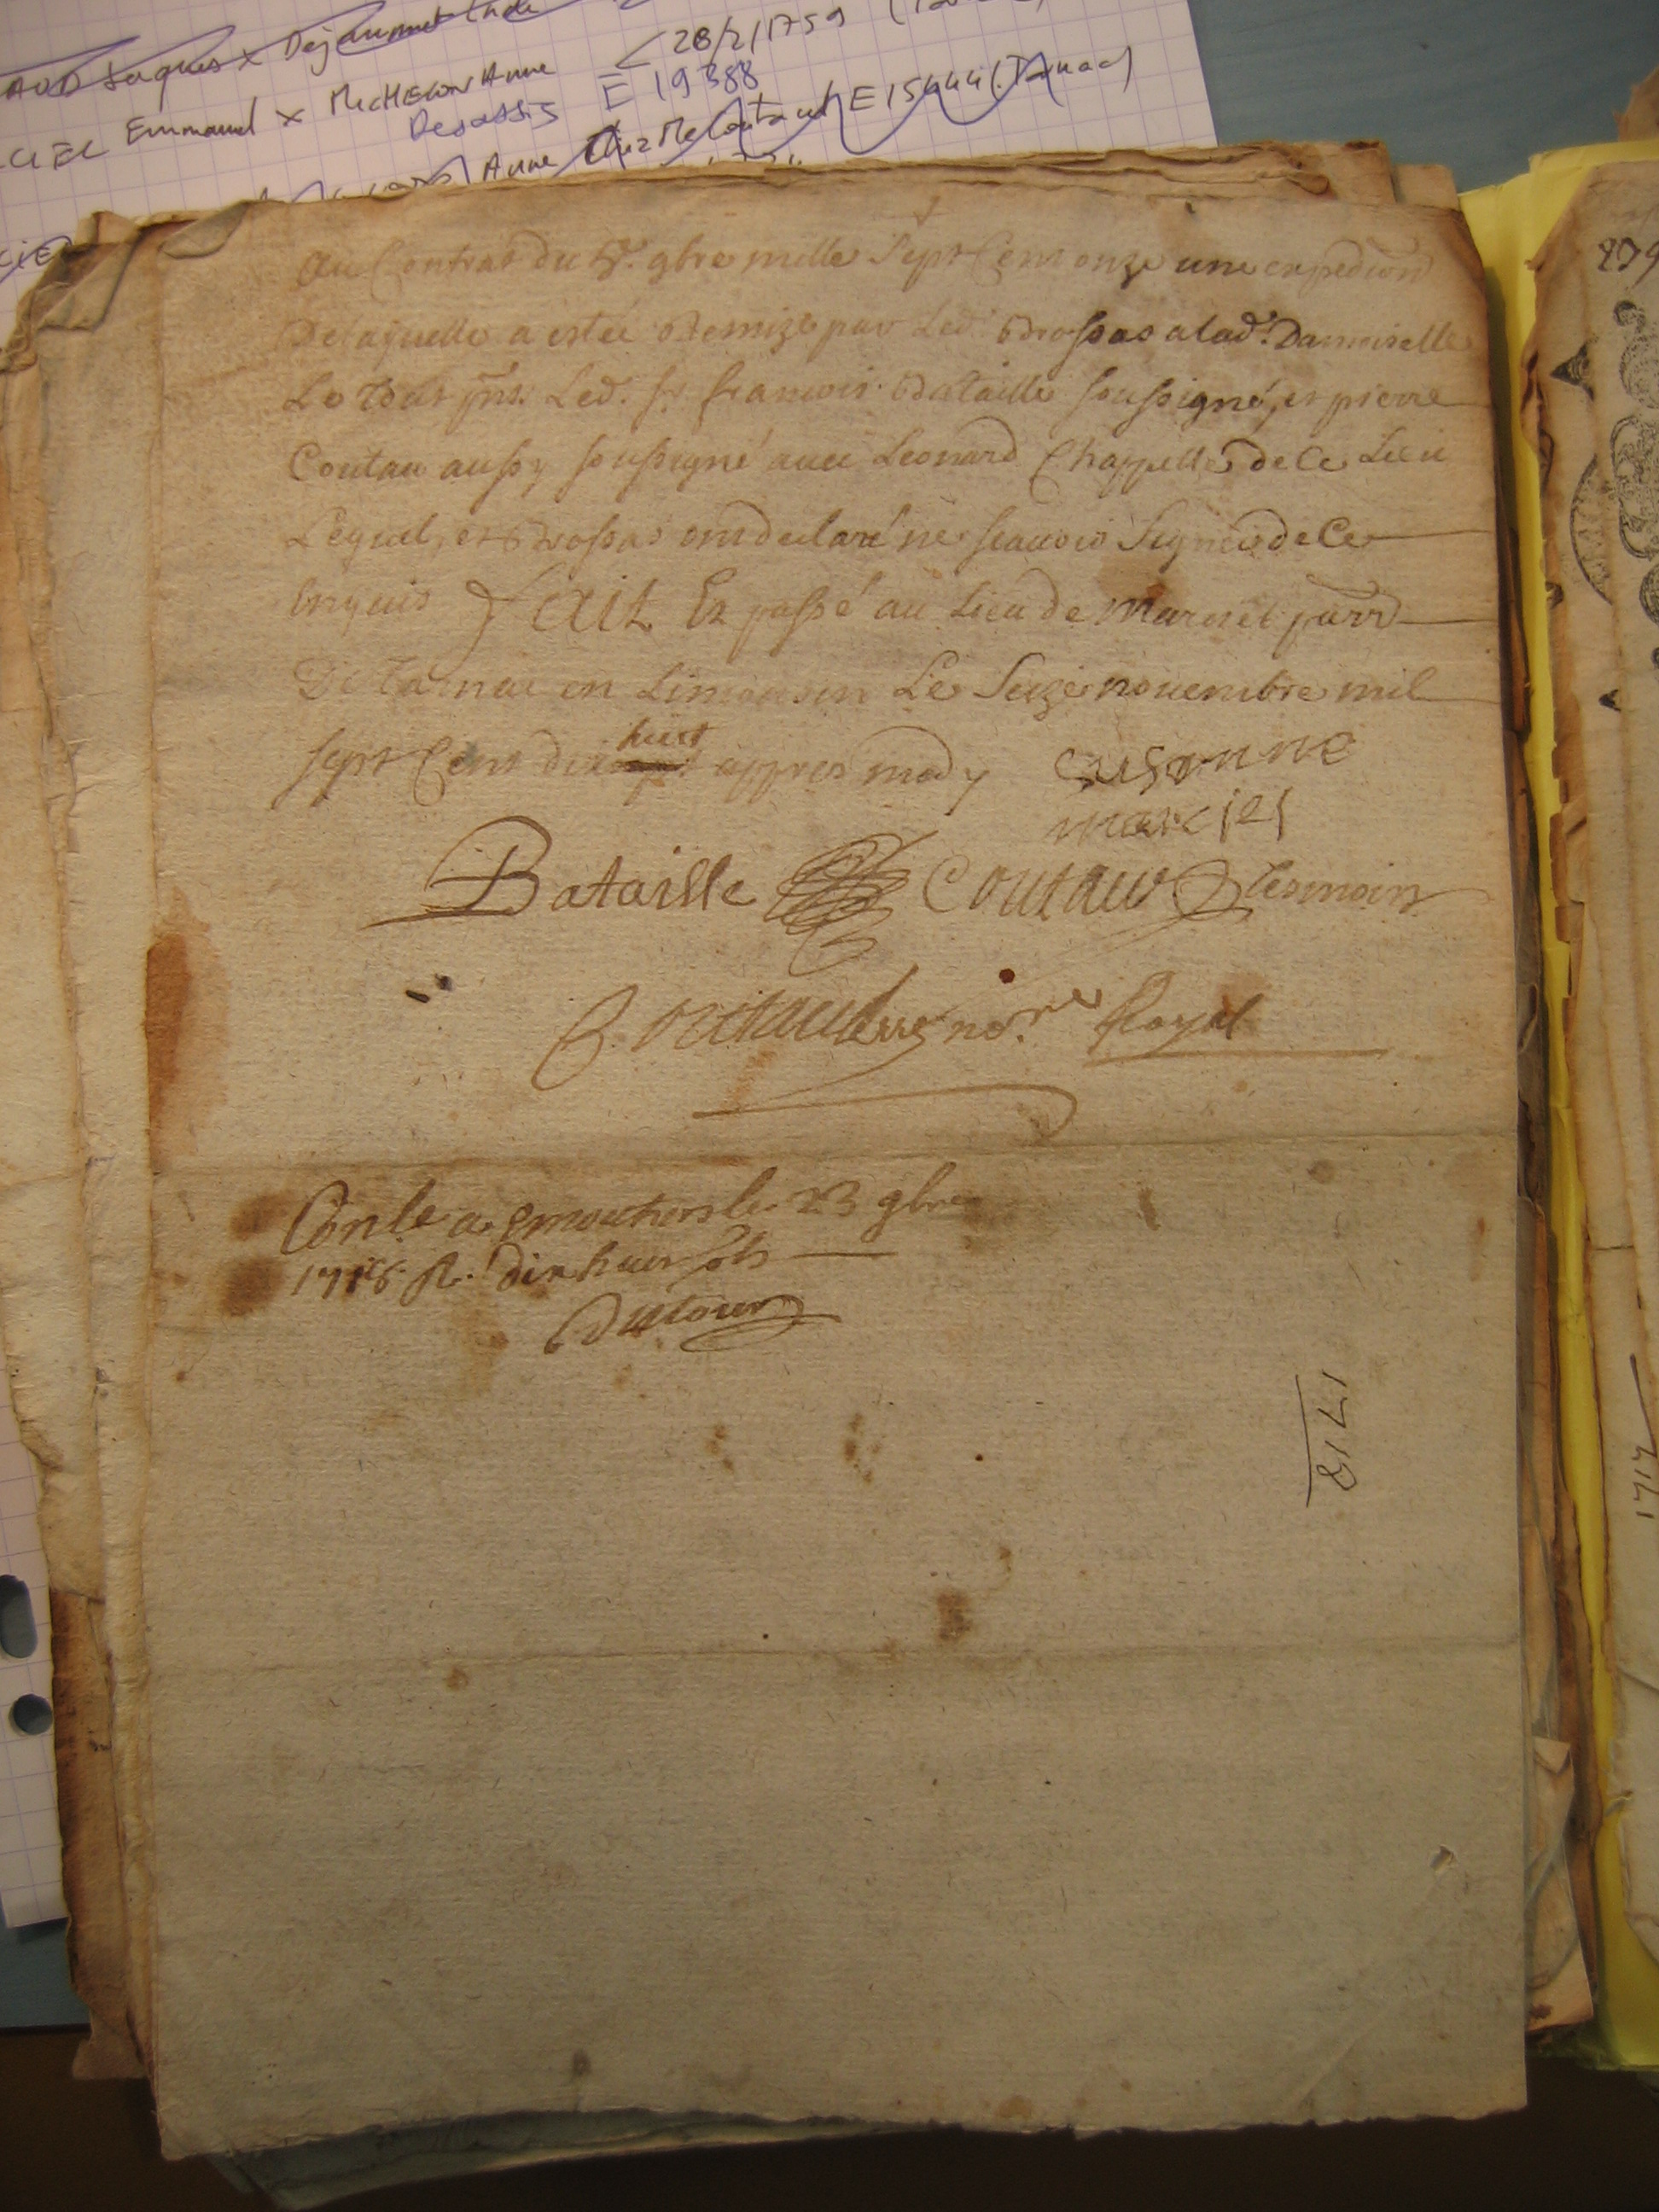 Jaques x Dejaumet
28/2/1759
CIEL Emmanuel x MICHELON Anne
Desassis E 19388
Anne chez Me Coutaud E 15444 (Tarnac)
Au Contrat du gbre mille Sept Cens onze une expedion
De laquelle a estée Remize par Led. Brossas a lad.e Damoiselle
Le tout pns. Led. sr. francois Bataille soussigné, et pierre
Coutau aussy soussigné avec Leonard Chappelle de Ce Lieu
Lequel, et Brossas ont declaré ne scavoir Signer de Ce
Enquis Fait Et passé au Lieu de Marnet parr
De Tarnac en Limousin Le Seize novembre mil
huit
sept Cens dix appres midy susanne
marciel
Bataille Coutaud tesmoin
Coutaud no.re Royal
Con.le a emoutiers le 23 gbre
1718 R. dix huit sols
Dutour
1718
239
1717